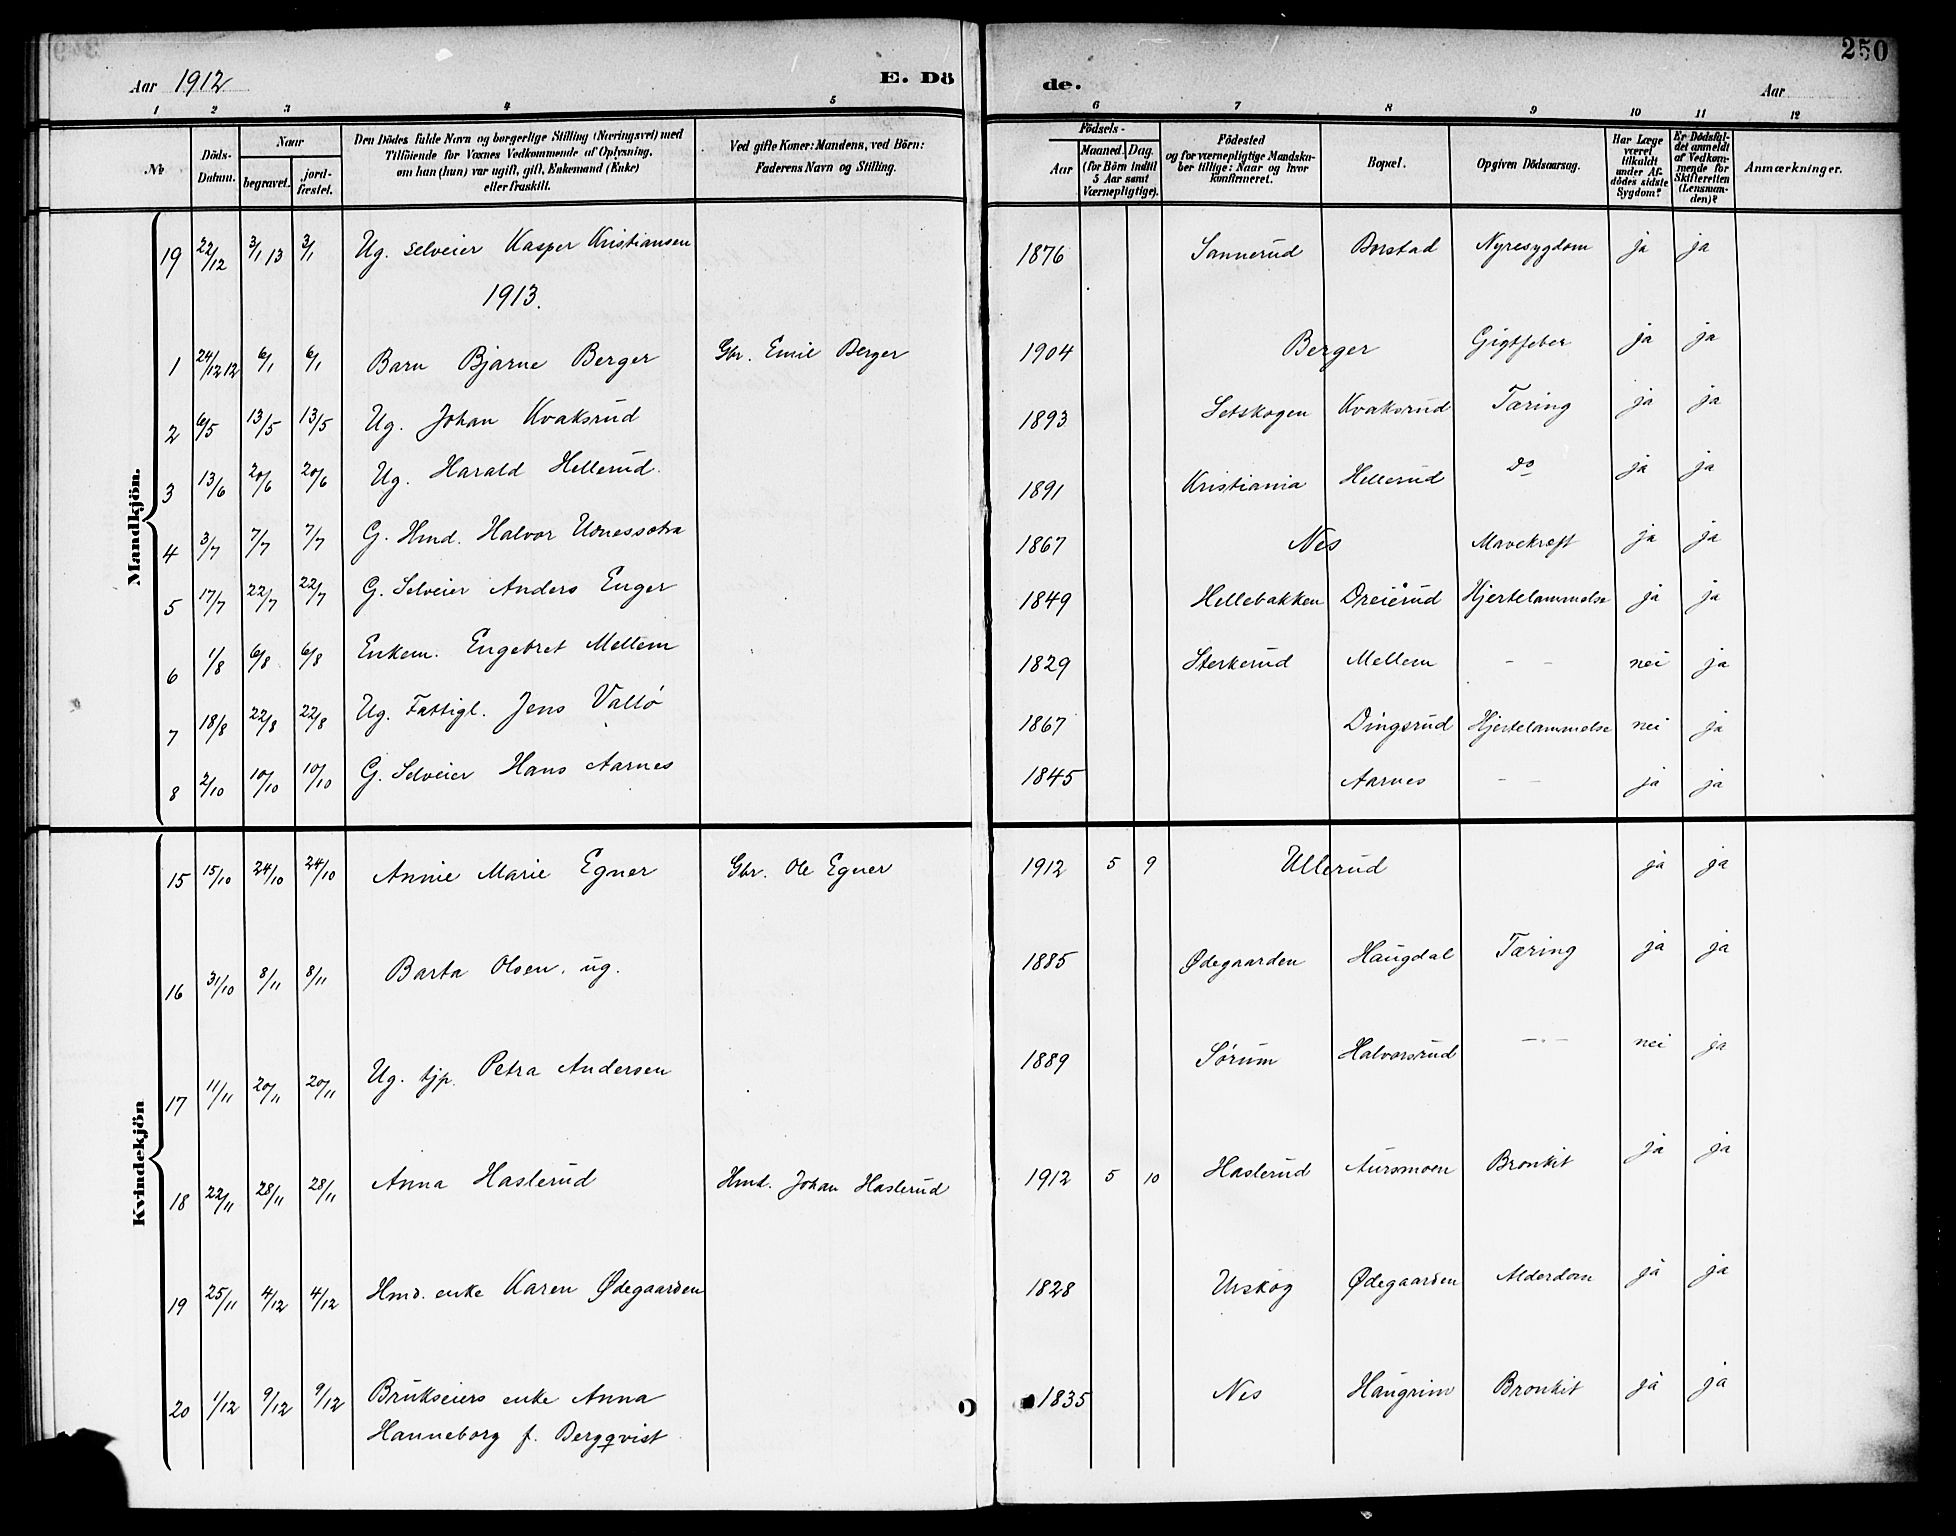 250
Aar 1912 E. Dö de. Aar
1 2 3 4 5 6 7 8 9 10 11 12
No
Döds-Datum.
Naar
begravet. jordfæstet.
Den Dödes fulde Navn og borgerlige Stilling (Næringsvei) med
Tilföiende for Voxnes Vedkommende af Oplysning,
om han (hun) var ugift, gift, Enkemand (Enke)
eller fraskilt.
Ved gifte Koner: Mandens, ved Börn:
Faderens Navn og Stilling.
Födsels-
Aar Maaned. Dag.
(for Börn indtil
5 Aar samt
Værnepligtige).
Födested
og for værnepligtige Mandskaber tillige: Naar og hvor
konfirmeret.
Bopæl.
Opgiven Dödsaarsag.
Har Læge
været
tilkaldt
under Afdödes sidste
Sygdom?
Er Dödsfaldet anmeldt
af Vedkommende for
Skifteretten
(Lensmanden)?
Anmærkninger.
Mandkjön.
19 22/12 3/1 13 3/1 Ug. selveier Kasper Kristiansen 1876 Sannerud Borstad Nyresygdom ja ja
1913.
1 24/12 12 6/1 6/1 Barn Bjarne Berger Gbr. Emil Berger 1904 Berger Gigtfeber ja ja
2 6/5 13/5 13/5 Ug. Johan Kvaksrud 1893 Setskogen Kvaksrud Tæring ja ja
3 13/6 20/6 20/6 Ug. Harald Hellerud. 1891 Kristiania Hellerud Do ja ja
4 3/7 7/7 7/7 G. Hmd. Halvor 1867 Nes Mavekræft ja ja
5 17/7 22/7 22/7 G. Selveier Anders Enger 1849 Hellebakken Dreierud Hjertelammelse ja ja
6 1/8 6/8 6/8 Enkem. Engebret Mellem 1829 Sterkerud Mellem - - nei ja
7 18/8 22/8 22/8 Ug. Fattigl. Jens Vallö 1867 Dingsrud Hjertelammelse nei ja
8 2/10 10/10 10/10 G. Selveier Hans Aarnes 1845 Aarnes - - ja ja
Kvindekjön
15 15/10 24/10 24/10 Annie Marie Egner Gbr. Ole Egner 1912 5 9 Ullerud ja ja
16 31/10 8/11 8/11 Barta Olsen. ug. 1885 Ødegaarden Haugdal Tæring ja ja
17 11/11 20/11 20/11 Ug. tjp. Petra Andersen 1889 Sörum Halvorsrud - - - nei ja
18 22/11 28/11 28/11 Anna Haslerud Hmd. Johan Haslerud 1912 5 10 Haslerud Aursmoen Bronkit ja ja
19 25/11 4/12 4/12 Hmd. enke Karen Ødegaarden 1828 Urskog Ødegaarden Alderdom ja ja
20 1/12 9/12 9/12 Brukseiers enke Anna 1835 Nes Haugrim Bronkit ja ja
Hanneborg f. Bergqvist